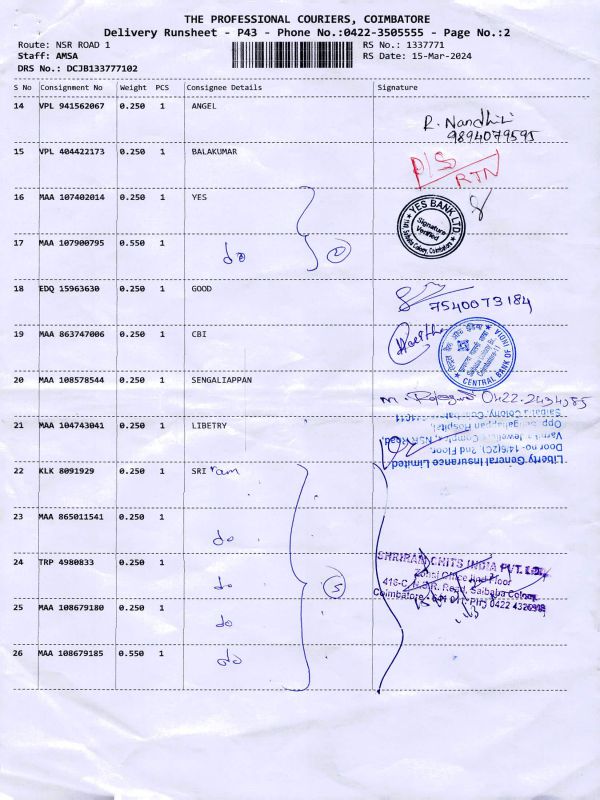 THE PROFESSIONAL COURIERS, COIMBATORE
Delivery Runsheet - P43 - Phone No.:0422-3505555 - Page No.:2
Route: NSR ROAD 1 RS No.: 1337771
Staff: AMSA RS Date: 15-Mar-2024
DRS No.: DCJB133777102
S No Consignment No Weight PCS Consignee Details Signature
14 VPL 941562067 0.250 1 ANGEL
R. Nandhini
9894079595
15 VPL 404422173 0.250 1 BALAKUMAR
D/S
RTN
16 MAA 107402014 0.250 1 YES
YES BANK LTD.
Signature Verified
Saibaba Colony, Coimbatore
17 MAA 107900795 0.550 1 do 2
18 EDQ 15963630 0.250 1 GOOD
7540073184
19 MAA 863747006 0.250 1 CBI
CENTRAL BANK OF INDIA
20 MAA 108578544 0.250 1 SENGALIAPPAN
0422-2434385
21 MAA 104743041 0.250 1 LIBETRY
Liberty General Insurance Limited
Door no-146(2C), 2nd Floor,
Complex, NSR Road,
Opp. Sengaliappan Hospital,
Saibaba Colony, Coimbatore
22 KLK 8091929 0.250 1 SRI ram
23 MAA 865011541 0.250 1 do
24 TRP 4980833 0.250 1 do 5
SHRIRAM CHITS INDIA PVT. LTD.
Zonal Office IInd Floor
416-C, N.S.R. Road, Saibaba Colony
Coimbatore
25 MAA 108679180 0.250 1 do
26 MAA 108679185 0.550 1 do